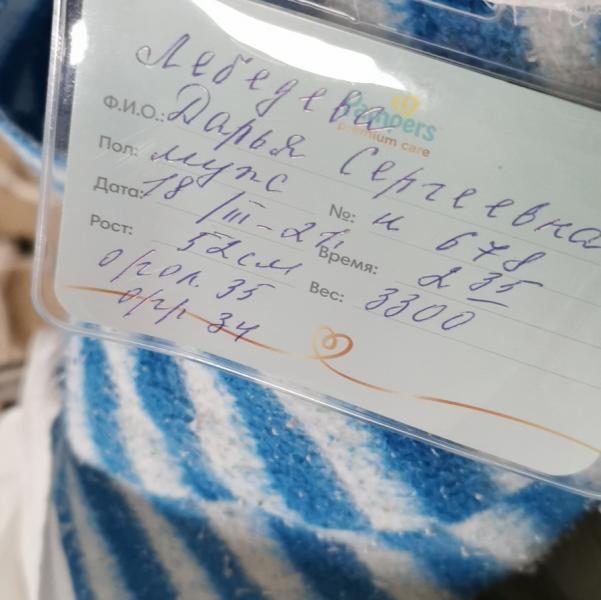 Лебедева
Pampers
premium care
Ф.И.О.: Дарья Сергеевна
Пол: мужс №: и 678
Дата: 18/III-21. Время: 2 35
Рост: 52см Вес: 3300
о/гол. 35
о/гр 34